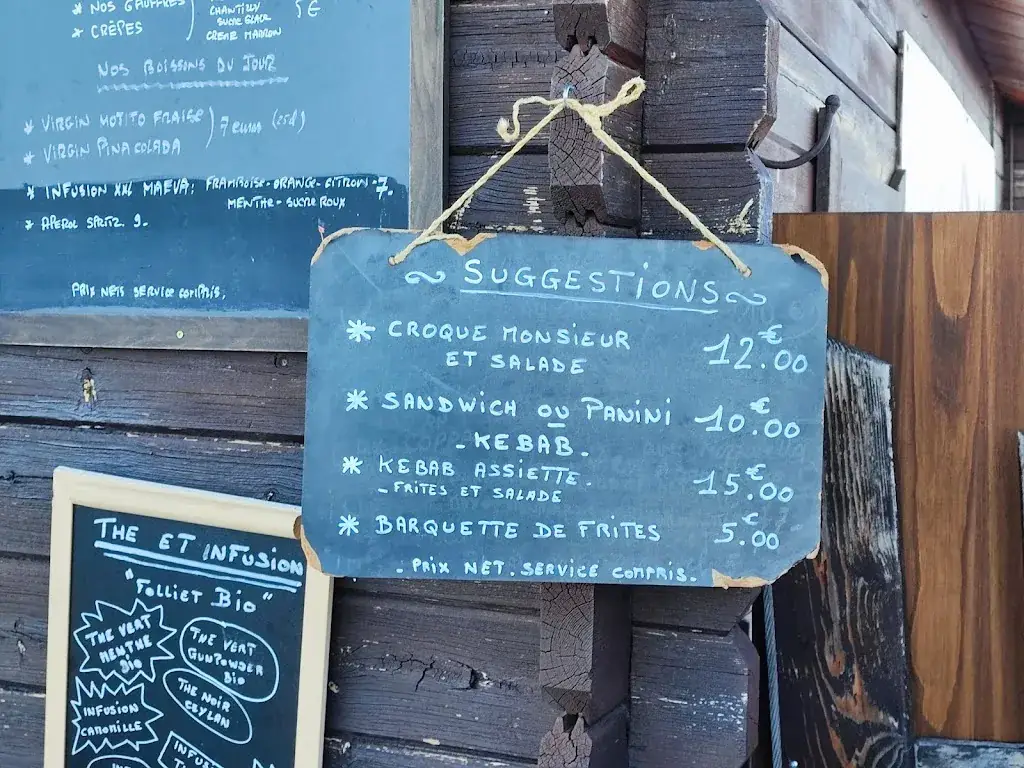 * NOS GAUFFRES
* CRÊPES
CHANTILLY
SUCRE GLACE
CREME MARRON
5€
NOS BOISSONS DU JOUR
* VIRGIN MOJITO FRAISE
* VIRGIN PINA COLADA
7 euros
* INFUSION XXL MAEVA: FRAMBOISE-ORANGE-CITRON-7.
MENTHE-SUCRE ROUX
* APEROL SPRITZ 9.
PRIX NETS SERVICE COMPRIS.
~ SUGGESTIONS ~
* CROQUE MONSIEUR
ET SALADE
12.00 €
* SANDWICH OU PANINI
- KEBAB.
10.00 €
* KEBAB ASSIETTE.
- FRITES ET SALADE
15.00 €
* BARQUETTE DE FRITES 5.00 €
- PRIX NET. SERVICE COMPRIS.
THE ET INFUSION
"Folliet Bio"
THE VERT
MENTHE
Bio
THE VERT
GUNPOWDER
Bio
THE NOIR
CEYLAN
INFUSION
CAMOMILLE